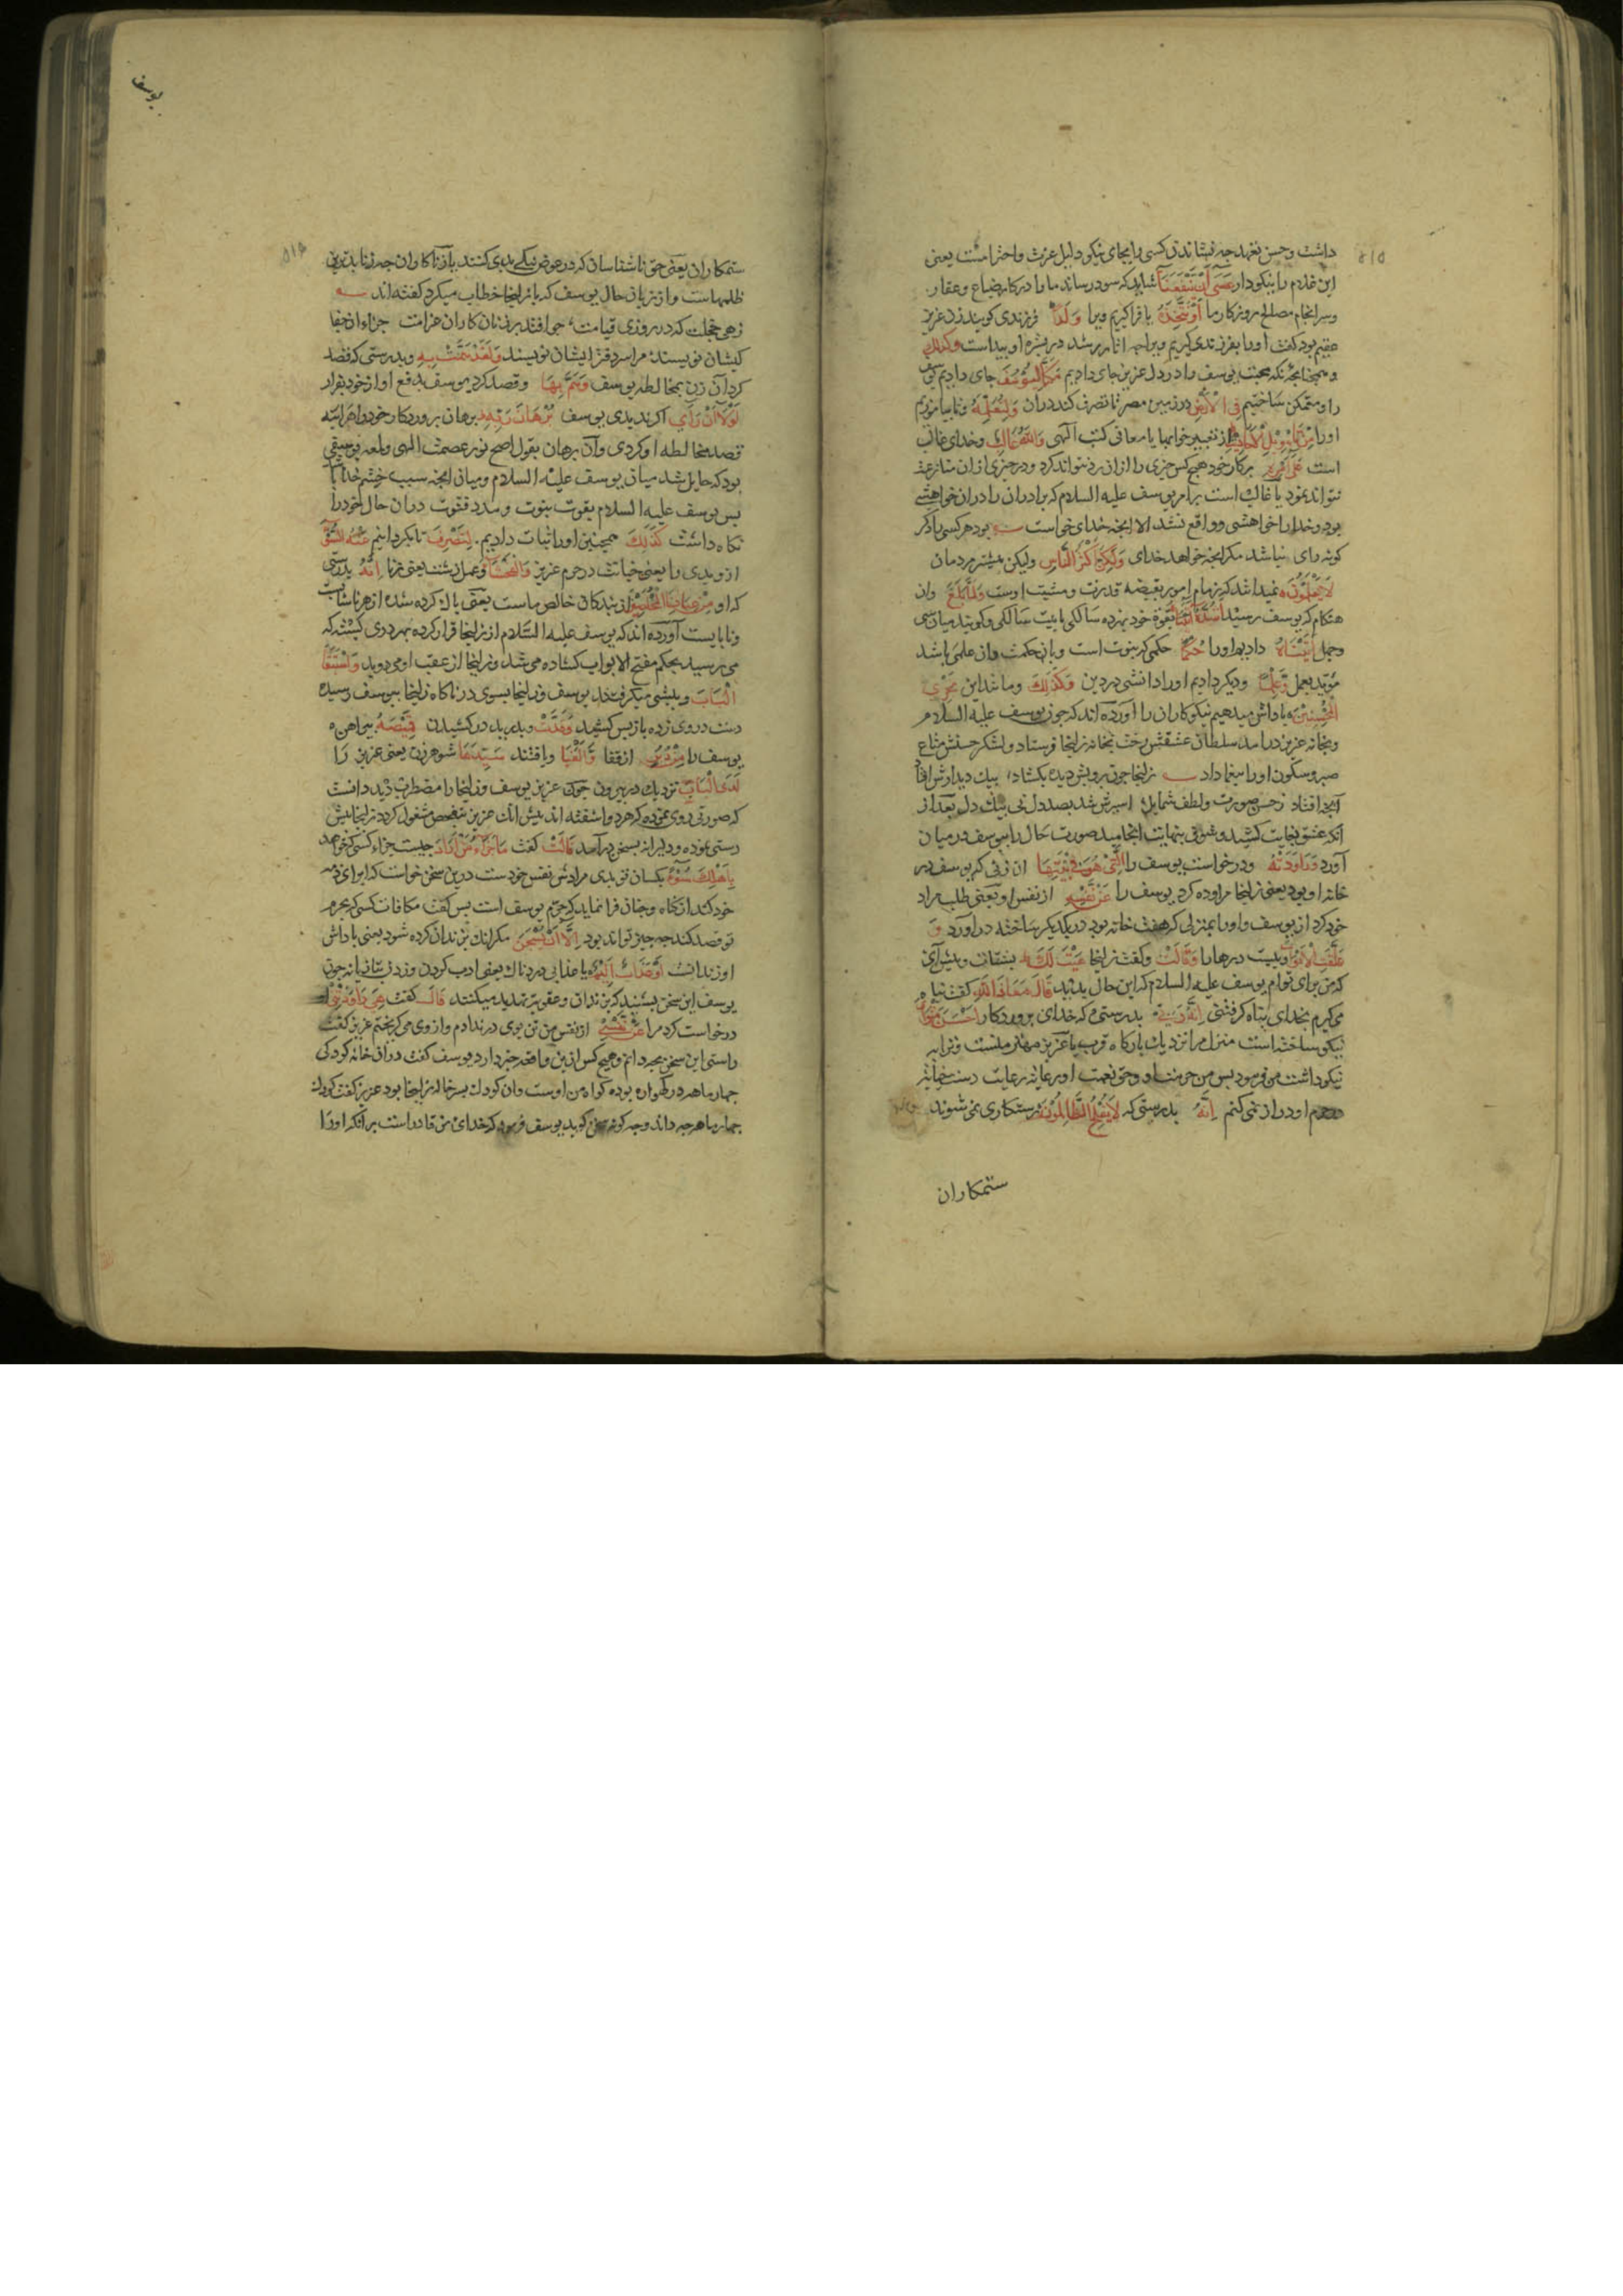 داشت وحسن تعهد چه نشاندن کسی را بجای نیکو دلیل عزت واحترامست یعنی
این غلام را نیکو دار عَسَى أَنْ يَنْفَعَنَا شاید که سود رساند ما را در کار ضیاع وعقار
وسرانجام مصالح روزکار ما أَوْ نَتَّخِذَهُ یا فراکیریم ویرا وَلَدًا فرزندی کویند زن عزیز
عقیم بود کفت اورا بفرزندی کیریم ویرا چه اثار رشد در بشره او پیداست وَكَذَلِكَ
و همچنانچه محبت یوسف را در دل عزیز جای دادیم مَكَّنَّا لِيُوسُفَ جای دادیم یوسف
را ومتمکن ساختیم فِي الْأَرْضِ در زمین مصر تا تصرف کند دران وَلِنُعَلِّمَهُ وتا بیاموزیم
اورا مِنْ تَأْوِيلِ الْأَحَادِيثِ از تعبیر خوابها یا معانی کتب الهی وَاللَّهُ غَالِبٌ وخدای غالب
است عَلَى أَمْرِهِ برکار خود هیچ کس چیزی را ازان رد نتواند کرد ودر چیزی ازان منازعه
نتواند نمود یا غالب است برامر یوسف علیه السلام که برادران را دران خواهشی
بود وخدا را خواهشی وواقع نشد الا انچه خدای خواست بود هر کسی را دکر
کونه رای نباشد مکر انچه خواهد خدای وَلَكِنَّ أَكْثَرَ النَّاسِ ولیکن بیشتر مردمان
لَا يَعْلَمُونَ نمیدانند که زمام امور بقبضه قدرت ومشیت اوست وَلَمَّا بَلَغَ وان
هنکام که یوسف رسید أَشُدَّهُ بقوة خود بهژده سالکی یا بیست سالکی وکویند میان سی
وچهل آتَيْنَاهُ دادیم اورا حُكْمًا حکمی که نبوت است ویا حکمت وان علمی باشد
مؤید بعمل وَعِلْمًا ودیکر دادیم اورا دانشی در دین وَكَذَلِكَ ومانند این نَجْزِي
الْمُحْسِنِينَ پاداش میدهیم نیکوکاران را آورده اند که چون یوسف علیه السلام
وبخانه عزیز درآمد سلطان عشقش رخت بخانه زلیخا فرستاد ولشکر حسنش متاع
صبر وسکون اورا بیغما داد زلیخا چون برویش دیده بکشاد بیک دیدارش افتاد
آنچه افتاد زحسن صورت ولطف شمایل اسیرش شد بصد دل نی بیک دل بعد از
انکه عشق بغایت کشید وشوق بنهایت انجامید صورت حال را بیوسف درمیان
آورد وَرَاوَدَتْهُ ودر خواست یوسف را الَّتِي هُوَ فِي بَيْتِهَا ان زنی که یوسف در
خانه او بود یعنی زلیخا مراوده کرد یوسف را عَنْ نَفْسِهِ از نفس او یعنی طلب مراد
خود کرد از یوسف واورا بمنزلی که هفت خانه بود در یکدیکر ساخته درآورد وَ
غَلَّقَتِ الْأَبْوَابَ وببست درها را وَقَالَتْ وکفت زلیخا هَيْتَ لَكَ بشتاب وپیش آی
که من برای توام یوسف علیه السلام که این حال بدید قَالَ مَعَاذَ اللَّهِ کفت پناه
می کیرم بخدای پناه کرفتنی إِنَّهُ رَبِّي بدرستی که خدای پروردکار أَحْسَنَ مَثْوَايَ
نیکو ساخته است منزل مرا نزدیک بارکاه قرب یا عزیز مهتر منست وترا به
نیکو داشت من فرمود پس من حرمت او وحق نعمت اورعایه رعایت دست خیانت
بحرم او دراز نمی کنم إِنَّهُ بدرستی که لَا يُفْلِحُ الظَّالِمُونَ رستکاری نمی شوند
ستمکاران
یوسف
ستمکاران یعنی حق ناشناسان که در عوض نیکی بدی کنند یا زناکاران چه زنا بدترین
ظلمهاست واز زبان حال یوسف که با زلیخا خطاب میکرد کفته اند
زهی خجلت که در روزی قیامت چو افتد بر زناکاران غرامت جزاء ان جفا
کیشان نویسند مرا سردفتر ایشان نویسند وَلَقَدْ هَمَّتْ بِهِ وبدرستی که قصد
کرد آن زن بمخالطه یوسف وَهَمَّ بِهَا وقصد کرد یوسف بدفع او از خود بفرار
لَوْلَا أَنْ رَأَى اکر ندیدی یوسف بُرْهَانَ رَبِّهِ برهان پروردکار خود را هر آینه
قصد مخالطه او کردی وآن برهان بقول اصح نور عصمت الهی ولمعه
بود که حایل شد میان یوسف علیه السلام ومیان انچه سبب خشم خدا
پس یوسف علیه السلام بقوت نبوت ومدد فتوت دران حال خود را
نکاه داشت كَذَلِكَ همچنین اورا ثبات دادیم لِنَصْرِفَ تا بکردانیم عَنْهُ السُّوءَ
ازو بدی را یعنی خیانت در حرم عزیز وَالْفَحْشَاءَ وعمل زشت یعنی زنا إِنَّهُ بدرستی
که او مِنْ عِبَادِنَا الْمُخْلَصِينَ از بندکان خالص ماست یعنی پاک کرده شده از هر ناشایست
ونابایست آورده اند که یوسف علیه السلام از زلیخا فرار کرده بهر دری بسته که
می رسید بحکم مفتح الابواب کشاده می شد وزلیخا از عقب او می دوید وَاسْتَبَقَا
الْبَابَ وپیشی میکرفتند یوسف وزلیخا بسوی در ناکاه زلیخا بیوسف رسیده
دست در وی زده باز پس کشید وَقَدَّتْ وبدرید در کشیدن قَمِيصَهُ پیراهن
یوسف را مِنْ دُبُرٍ از قفا وَأَلْفَيَا ویافتند سَيِّدَهَا شوهر زن یعنی عزیز را
لَدَى الْبَابِ نزدیک در بیرون چون عزیز یوسف وزلیخا را مضطرب دید دانست
که صورتی روی نموده که هردو اشفته اند پیش ازان عزیز بتفحص مشغول کردد زلیخا پیش
دستی نموده ودلیرانه بسخن درآمد قَالَتْ کفت مَا جَزَاءُ مَنْ أَرَادَ چیست جزاء کسی که خواهد
بِأَهْلِكَ سُوءًا بکسان تو بدی مرادش نفس خودست درین سخن خواست که ابرای ذمه
خود کند از کناه وچنان فرا نماید که جرم یوسف است پس کفت مکافات کسی که بحرم
تو قصد کند چه چیز تواند بود إِلَّا أَنْ يُسْجَنَ مکر انکه بزندان کرده شود یعنی پاداش
او زندانست أَوْ عَذَابٌ أَلِيمٌ یا عذابی دردناک یعنی ادب کردن وزدن بتازیانه چون
یوسف این سخن بشنید که بزندان وعقوبت تهدید میکنند قَالَ کفت هِيَ رَاوَدَتْنِي او
درخواست کرد مرا عَنْ نَفْسِي از نفس من من بوی در ندادم واز وی می کریختم عزیز کفت
راستی این سخن بچه دانم وهیچ کس ازین واقعه خبر دارد یوسف کفت دران خانه کودکی
چهار ماهه در کهواره بوده کواه من اوست وان کودک پسر خاله زلیخا بود عزیز کفت کودک
چهار ماهه چه داند وچه کونه سخن کوید یوسف فرمود که خدای من قادر است برانکه اورا